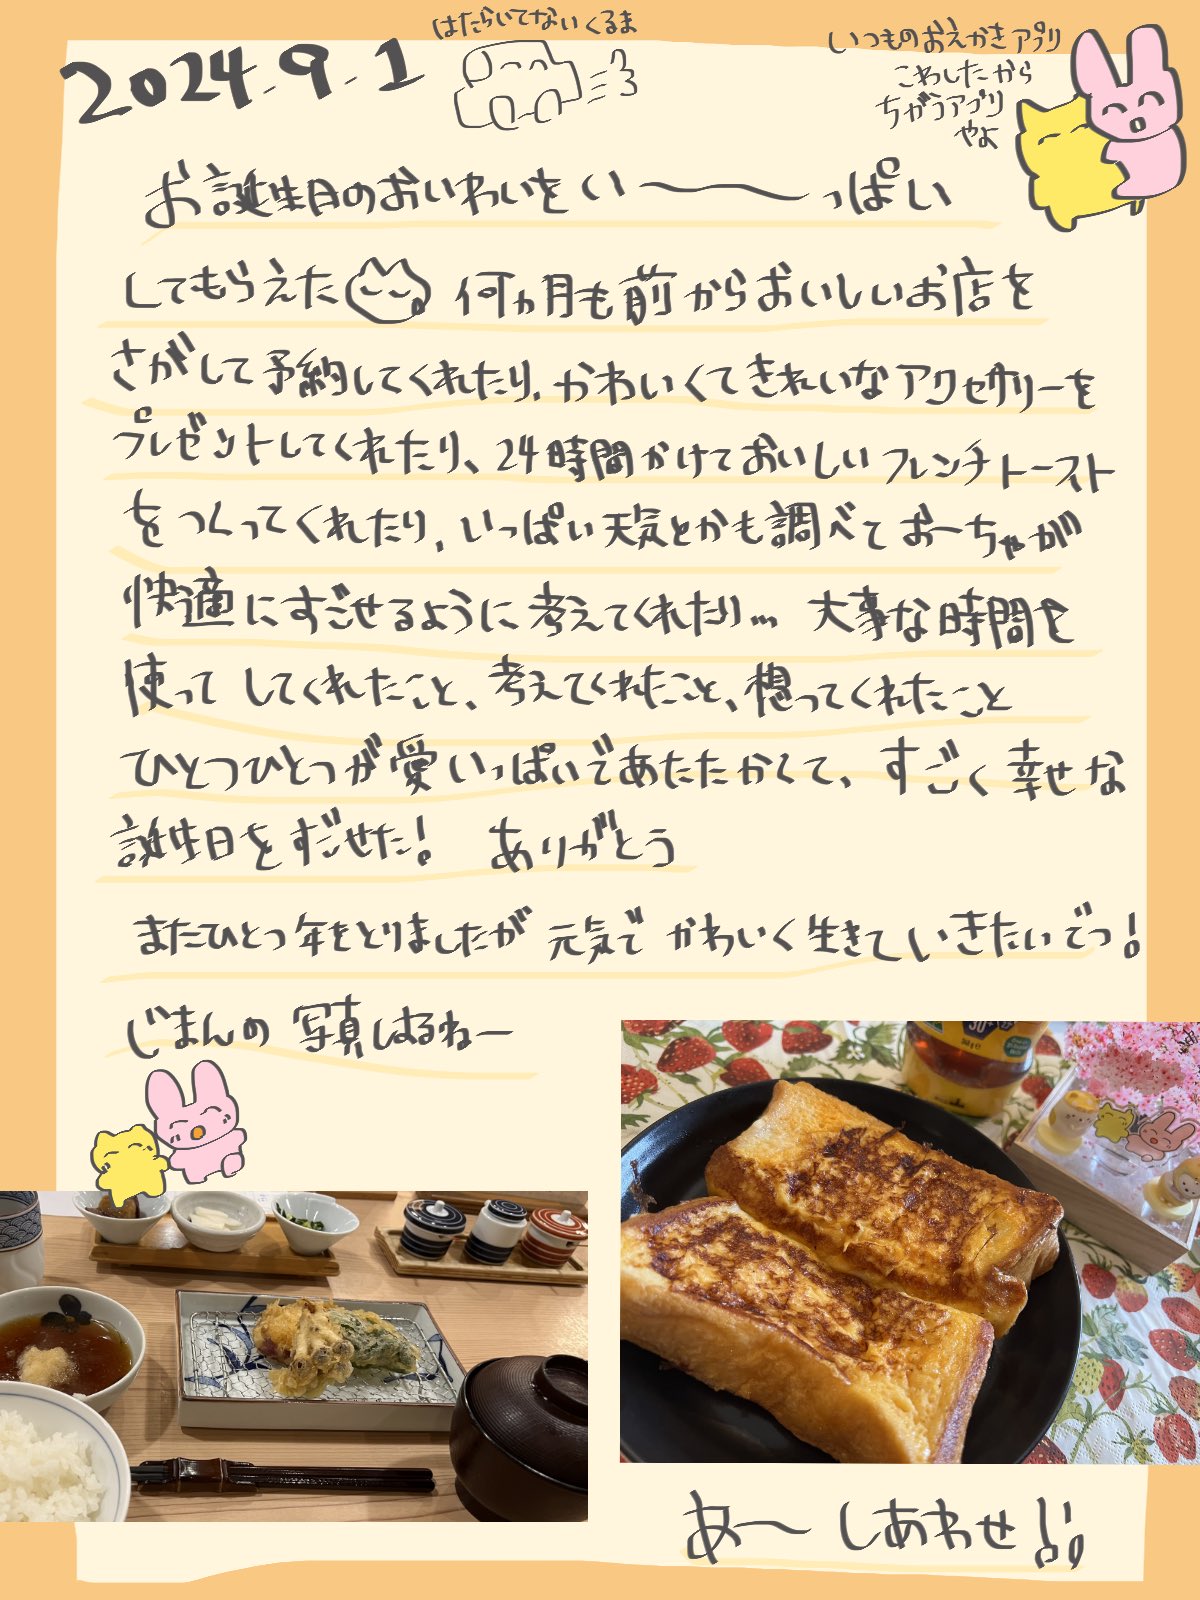 はたらいてないくるま
2024.9.1
いつものおえかきアプリ
こわしたから
ちがうアプリ
やよ
お誕生日のおいわいをい〜〜っぱい
してもらえた 何ヵ月も前からおいしいお店を
さがして予約してくれたり、かわいくてきれいなアクセサリーを
プレゼントしてくれたり、24時間かけておいしいフレンチトースト
をつくってくれたり、いっぱい天気とかも調べておーちゃが
快適にすごせるように考えてくれたり… 大事な時間を
使ってしてくれたこと、考えてくれたこと、想ってくれたこと
ひとつひとつが愛いっぱいであたたかくて、すごく幸せな
誕生日をすごせた! ありがとう
またひとつ年をとりましたが元気でかわいく生きていきたいでつ!
じまんの写真はるねー
あ〜しあわせ!!